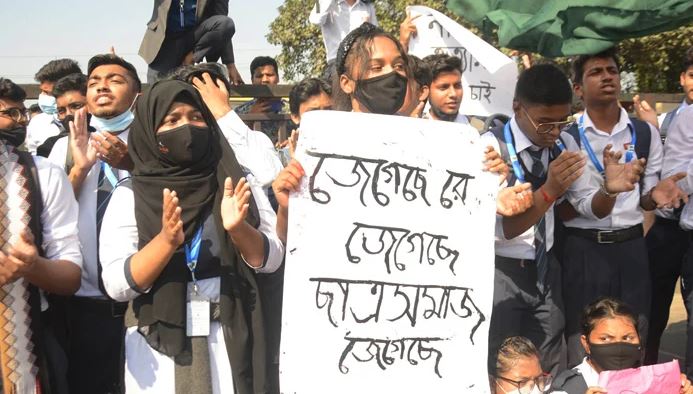 চাই
জেগেছে রে
জেগেছে
ছাত্রসমাজ
জেগেছে